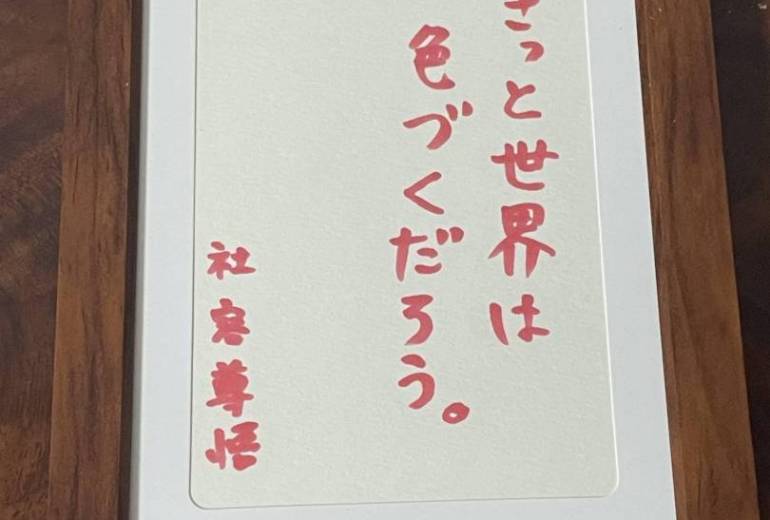 きっと世界は
色づくだろう。
社客尊悟